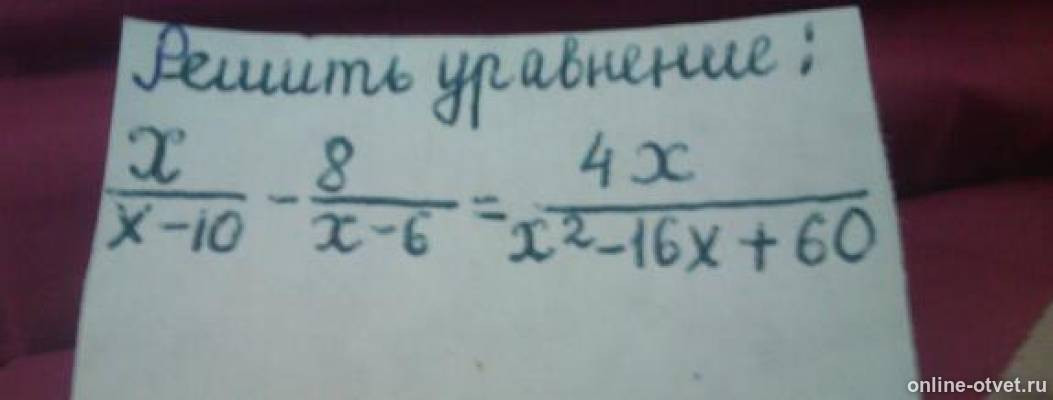 Решить уравнение:
x/(x-10) - 8/(x-6) = 4x/(x²-16x+60)
online-otvet.ru